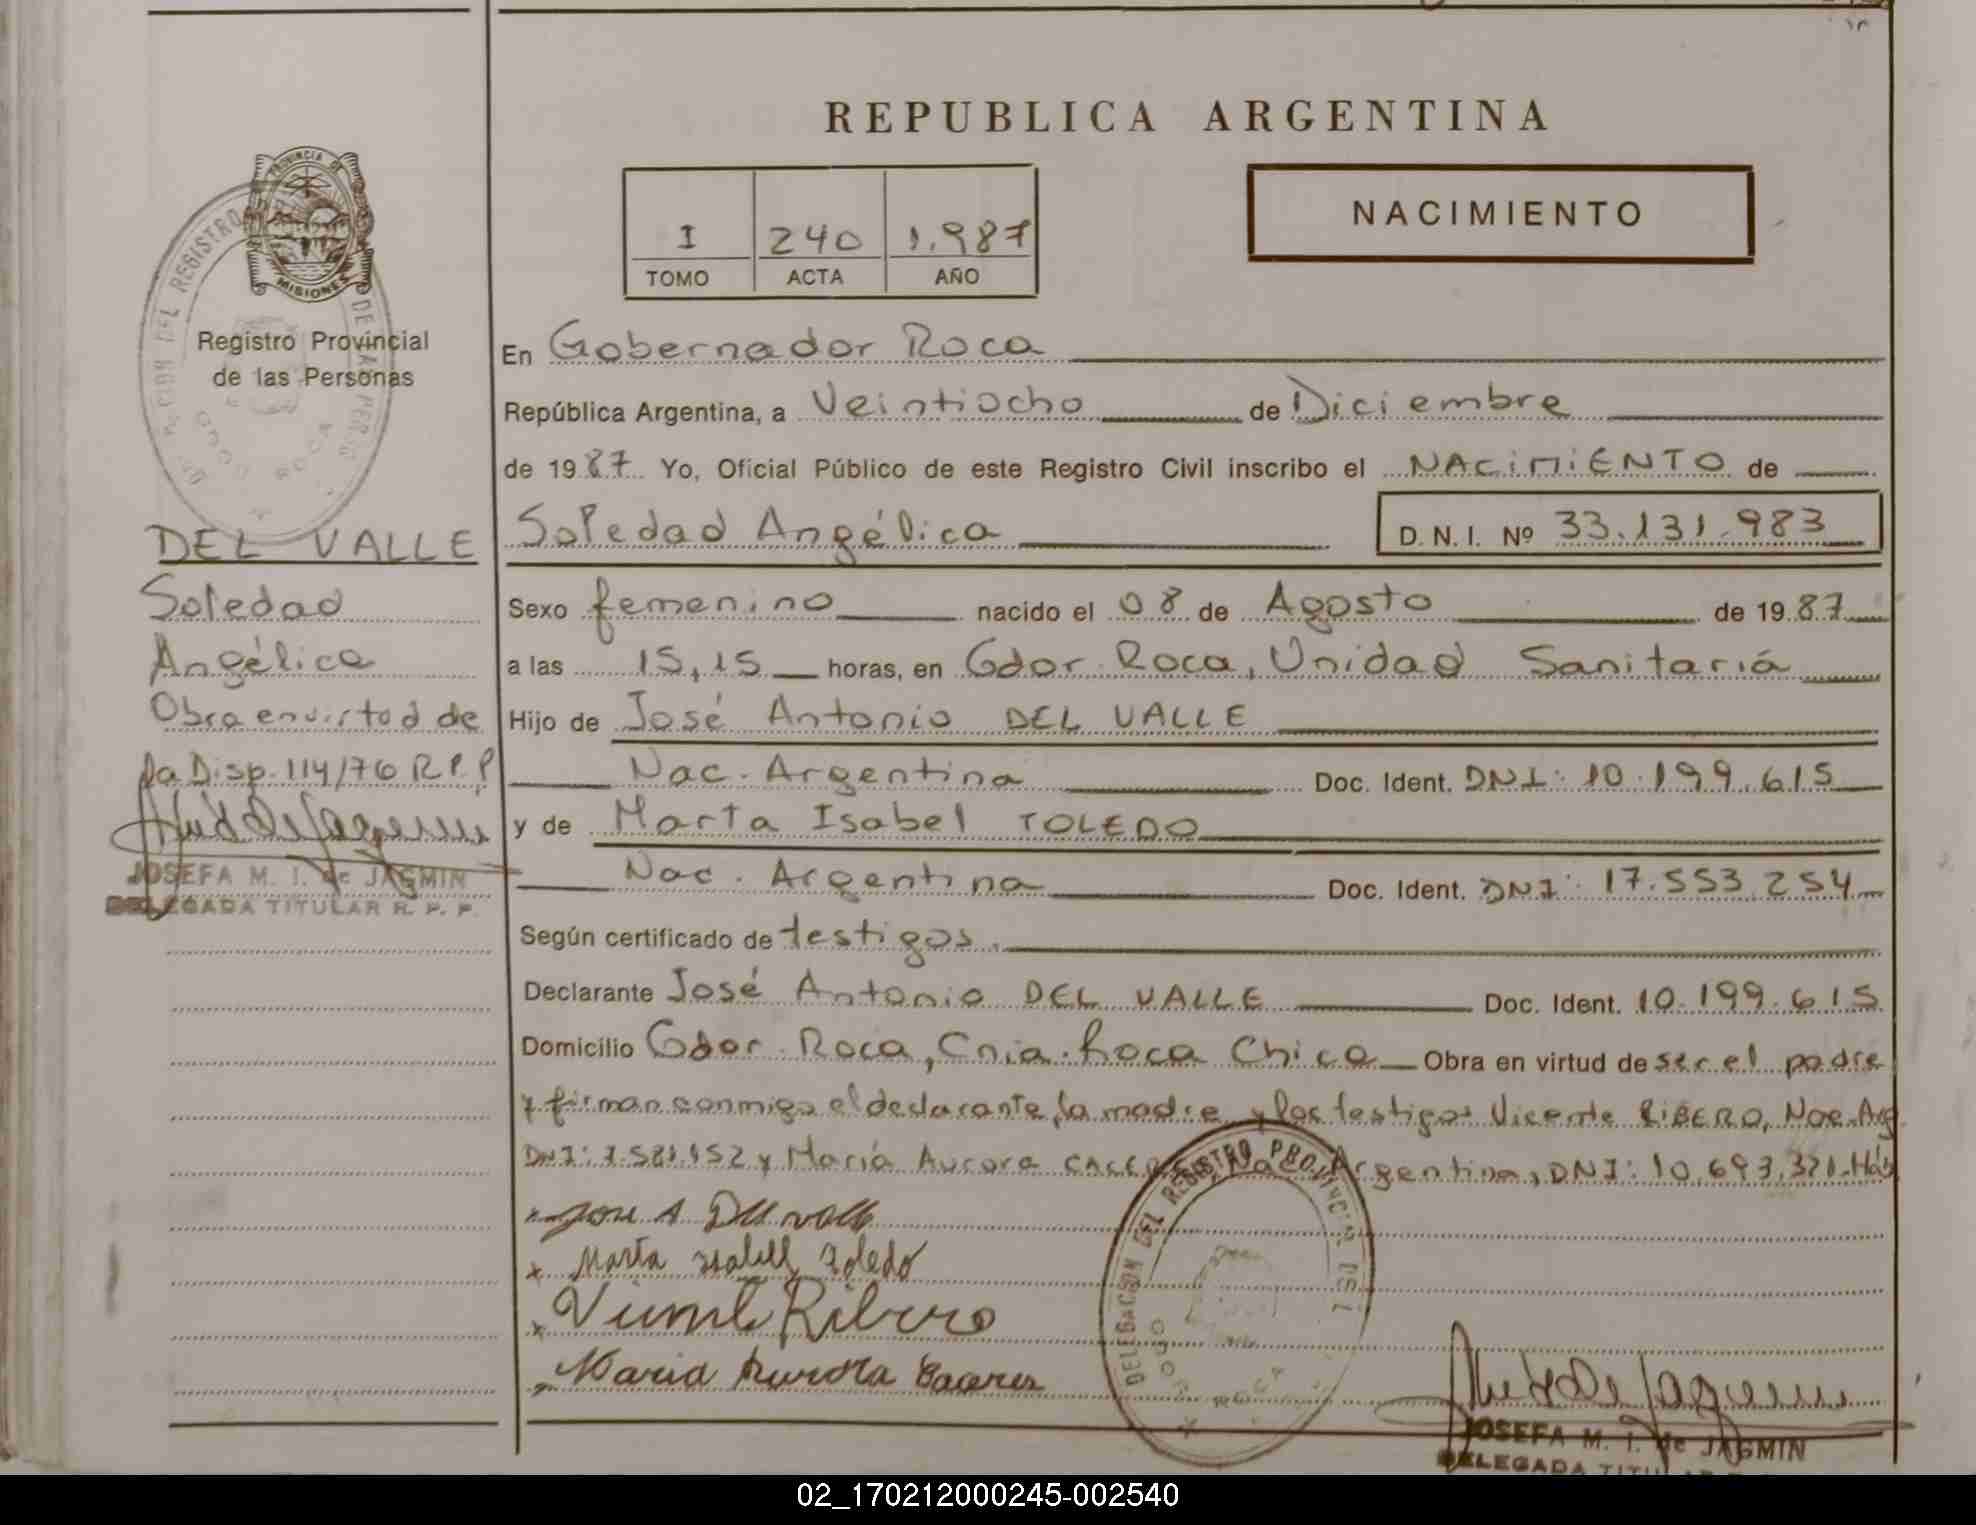 REPUBLICA ARGENTINA
I 240 1.987
TOMO ACTA AÑO
NACIMIENTO
PROVINCIA DE
MISIONES
Registro Provincial
de las Personas
DEL VALLE
Soledad
Angélica
Obra en virtud de
la Disp. 114/76 R.P.P
JOSEFA M. I. de JAGMIN
DELEGADA TITULAR R. P. P.
En Gobernador Roca
República Argentina, a Veintiocho de Diciembre
de 1987 Yo, Oficial Público de este Registro Civil inscribo el NACIMIENTO de
Soledad Angélica D.N.I. Nº 33.131.983
Sexo femenino nacido el 08 de Agosto de 1987
a las 15,15 horas, en Gdor. Roca, Unidad Sanitaria
Hijo de José Antonio DEL VALLE
Nac. Argentina Doc. Ident. DNI: 10.199.615
y de Marta Isabel TOLEDO
Nac. Argentina Doc. Ident. DNI: 17.553.254
Según certificado de testigos.
Declarante José Antonio DEL VALLE Doc. Ident. 10.199.615
Domicilio Gdor. Roca, Cnia. Roca Chica Obra en virtud de ser el padre
y firman conmigo el declarante, la madre y los testigos Vicente RIBERO, Nac. Arg
DNI: y María Aurora Nac. Argentina, DNI: 10.693.321
x Jose A Del valle
x Marta Isabel Toledo
x Vicente Ribero
x Maria Aurora Caceres
DELEGACION DEL REGISTRO PROVINCIAL
JOSEFA M. I. de JAGMIN
DELEGADA TITULAR
02_170212000245-002540